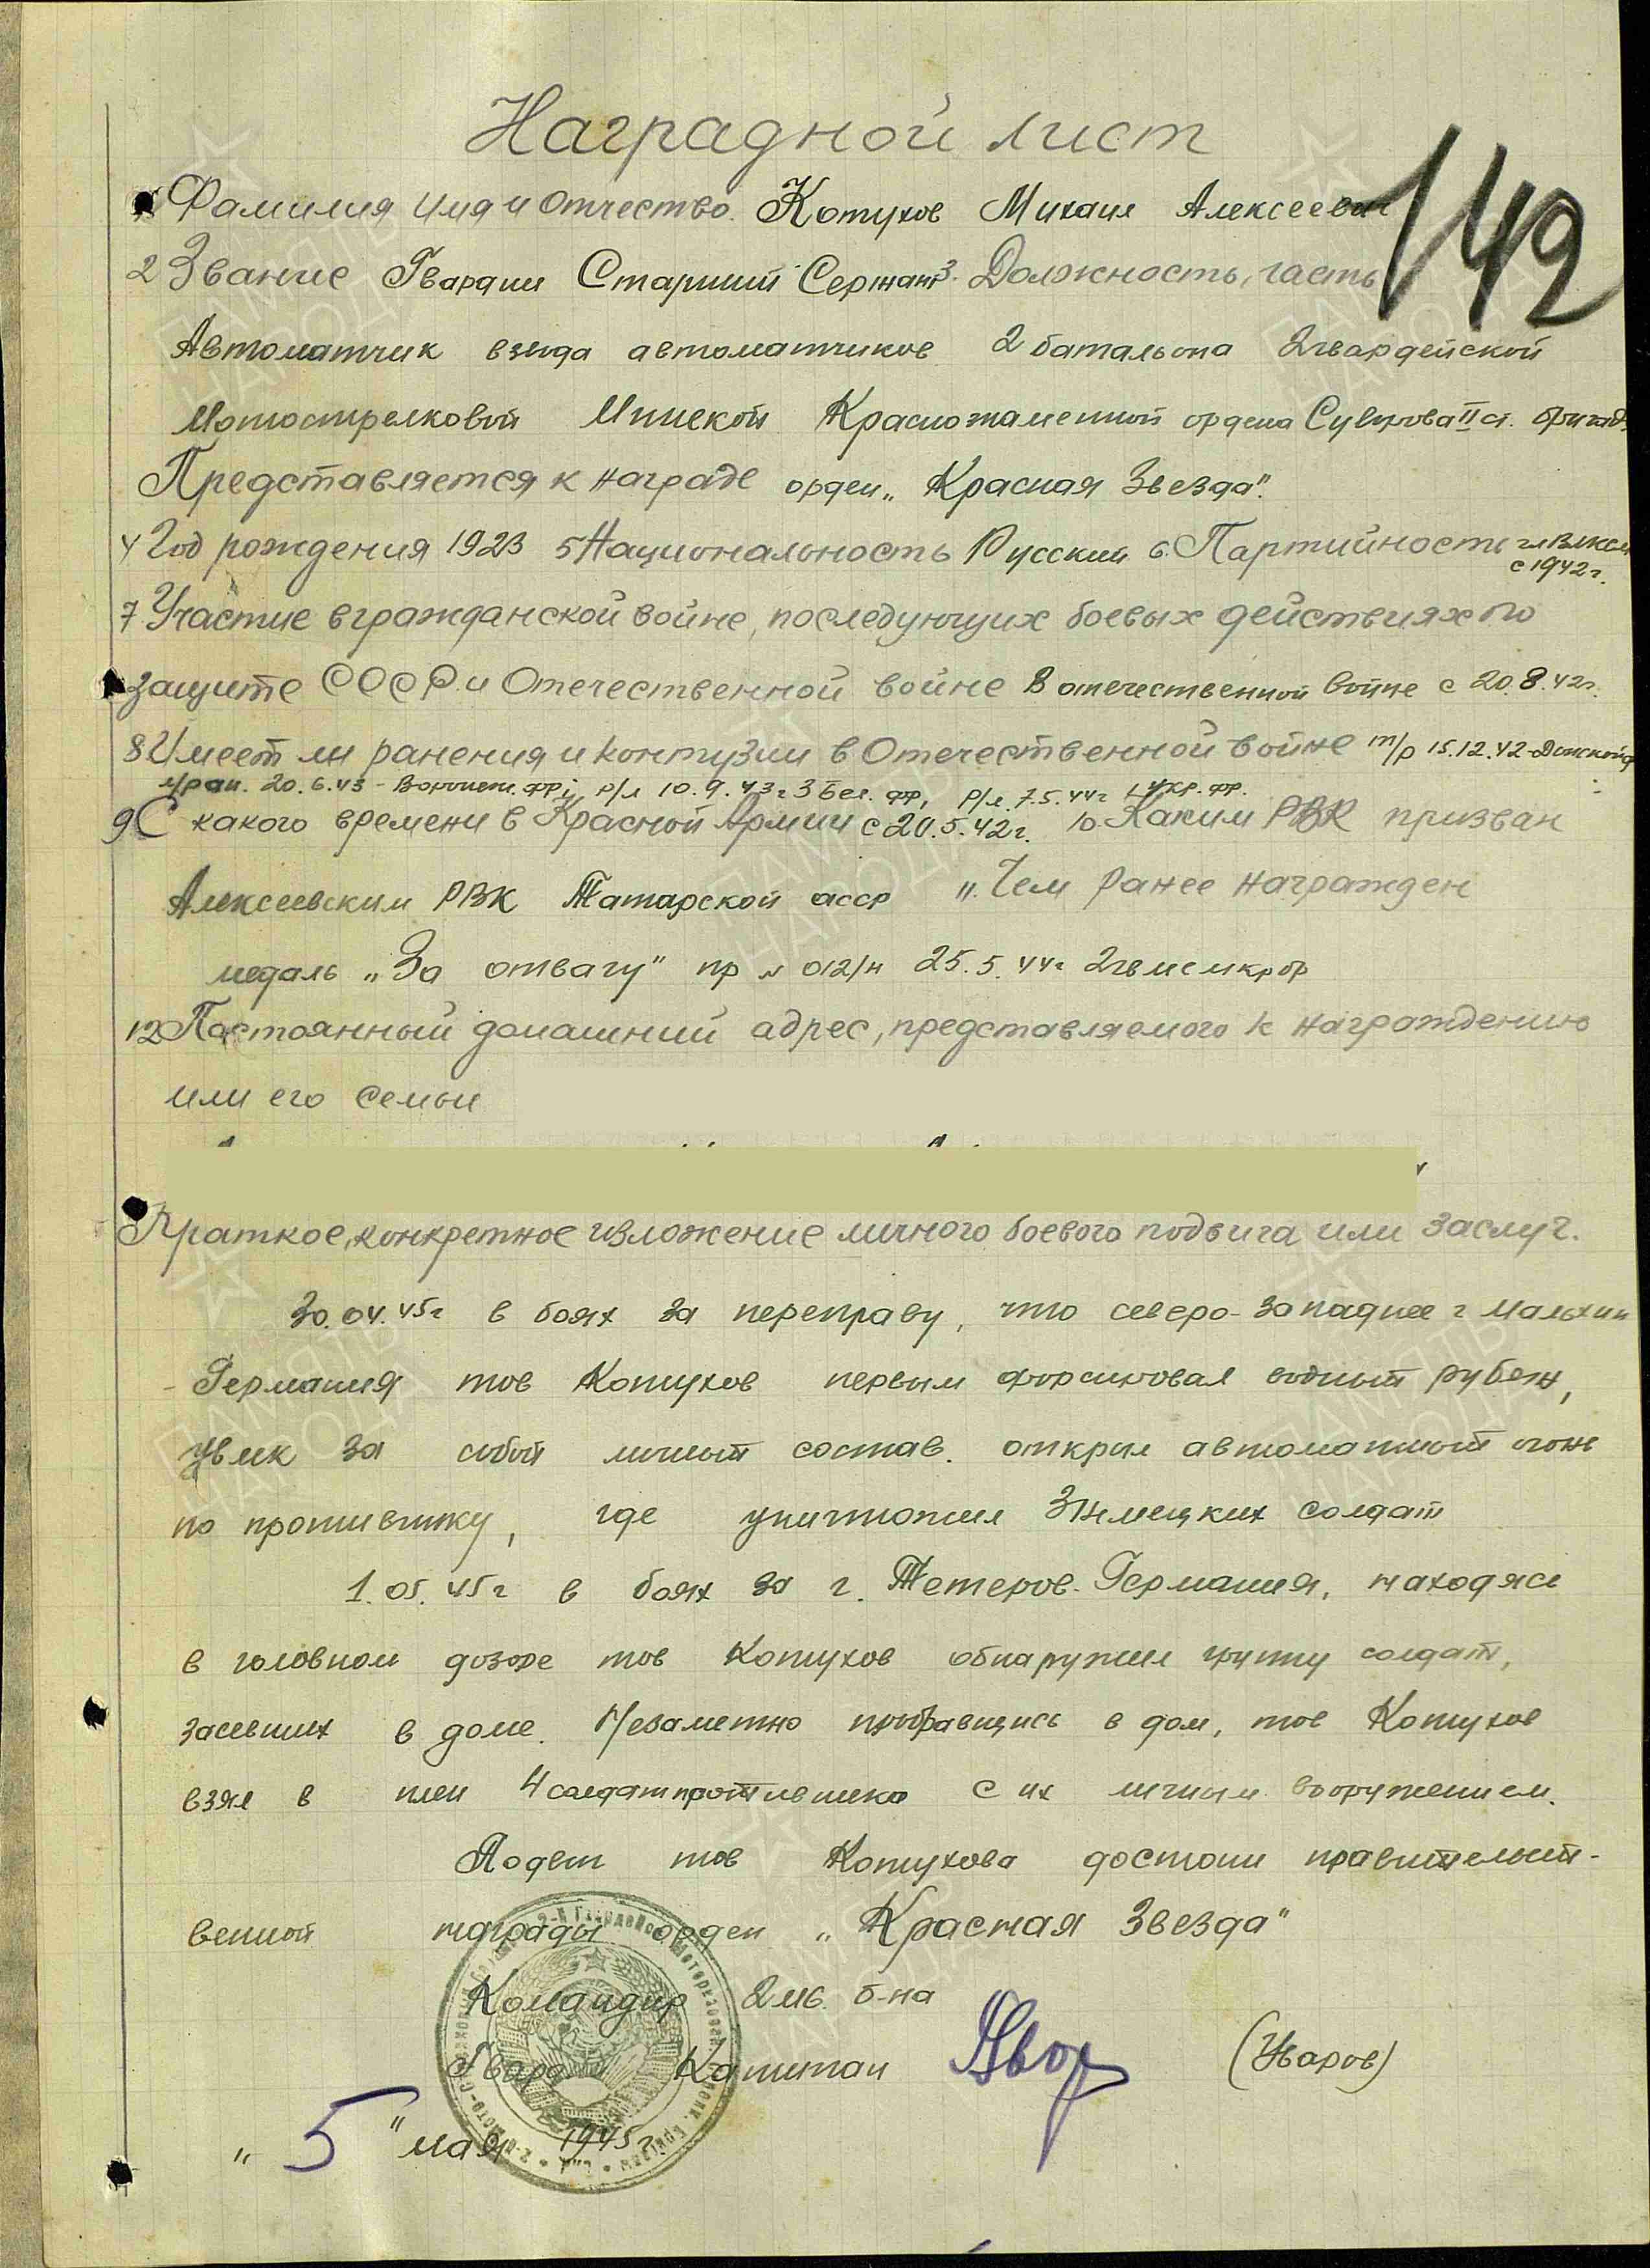 Наградной лист
142
Фамилия Имя и Отчество. Котухов Михаил Алексеевич
2 Звание Гвардии Старший Сержант 3. Должность, часть
Автоматчик взвода автоматчиков 2 батальона 2 гвардейской
Мотострелковой Минской Краснознаменной ордена Суворова II ст. бригады
Представляется к награде орден „Красная Звезда".
4 Год рождения 1923 5 Национальность Русский 6. Партийность чл ВЛКСМ
с 1942 г.
7 Участие в гражданской войне, последующих боевых действиях по
защите СССР и Отечественной войне В отечественной войне с 20.8.42 г.
8 Имеет ли ранения и контузии в Отечественной войне т/р 15.12.42 - Донской ф
л/ран. 20.6.43 - Воронеж. фр; р/л 10.9.43 г 3 Бел. фр, р/л. 7.5.44 г 1 Укр. фр.
9 С какого времени в Красной Армии с 20.5.42 г. 10. Каким РВК призван
Алексеевским РВК Татарской асср 11. Чем ранее награжден
медаль „За отвагу" пр № 012/н 25.5.44 г 2 гв мс мкр бр
12 Постоянный домашний адрес, представляемого к награждению
или его семьи
Краткое, конкретное изложение личного боевого подвига или заслуг.
30.04.45 г в боях за переправу, что северо-западнее г Мальхин
- Германия тов Котухов первым форсировал водный рубеж,
увлек за собой личный состав. открыл автоматный огонь
по противнику, где уничтожил 3 немецких солдат
1.05.45 г в боях за г. Тетеров - Германия, находясь
в головном дозоре тов Котухов обнаружил группу солдат,
засевших в доме. Незаметно пробравшись в дом, тов Котухов
взял в плен 4 солдат противника с их личным вооружением.
Подвиг тов Котухова достоин правительст-
венной награды орден „Красная Звезда"
Командир 2 мс. б-на
Гвард Капитан (Уваров)
„5" мая 1945 г.